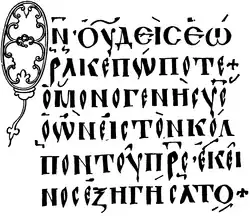 Θ̅Ν̅· ΟΥΔΕῒϹ ΕΩ
ΡΑΚΕ ΠΩΠΟΤΕ +
Ο ΜΟΝΟΓΕΝΗϹ Υ̅Ϲ̅
Ο ΩΝ ΕΙϹ ΤΟΝ ΚΟΛ
ΠΟΝ ΤΟΥ Π̅Ρ̅Ϲ̅· ΕΚΕΙ
ΝΟϹ ΕΞΗΓΗϹΑΤΟ +